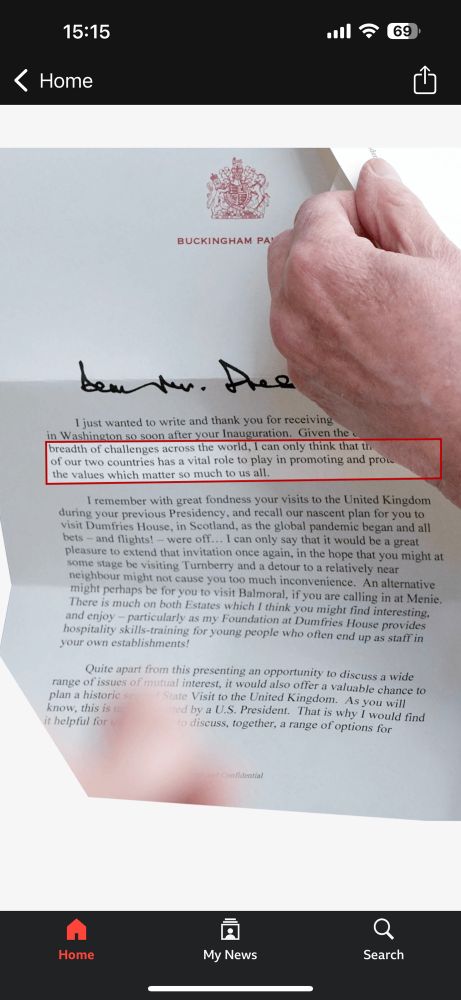 15:15
69
Home
BUCKINGHAM
Dear Mr.
I just wanted to write and thank you for receiving
in Washington so soon after your Inauguration. Given the
breadth of challenges across the world, I can only think that
of our two countries has a vital role to play in promoting and
the values which matter so much to us all.
I remember with great fondness your visits to the United Kingdom
during your previous Presidency, and recall our nascent plan for you to
visit Dumfries House, in Scotland, as the global pandemic began and all
bets – and flights! – were off… I can only say that it would be a great
pleasure to extend that invitation once again, in the hope that you might at
some stage be visiting Turnberry and a detour to a relatively near
neighbour might not cause you too much inconvenience. An alternative
might perhaps be for you to visit Balmoral, if you are calling in at Menie.
There is much on both Estates which I think you might find interesting,
and enjoy – particularly as my Foundation at Dumfries House provides
hospitality skills-training for young people who often end up as staff in
your own establishments!
Quite apart from this presenting an opportunity to discuss a wide
range of issues of mutual interest, it would also offer a valuable chance to
plan a historic State Visit to the United Kingdom. As you will
know, this is by a U.S. President. That is why I would find
it helpful for to discuss, together, a range of options for
Confidential
Home
My News
Search